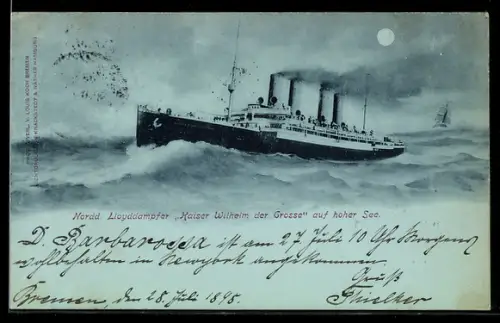 Nordd Lloyddampfer „Kaiser Wilhelm der Grosse" auf hoher See.
D. Barbarossa ist am 27 Juli 10 Uhr Morgens
wohlbehalten in Newyork angekommen.
Gruß
Bremen, den 28. Juli 1898.